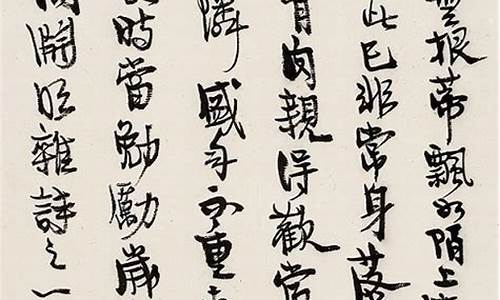 無根蒂飄如陌上
此已非常身落
肉親得歡當
隣盛年不重
時當勉勵歲
淵明雜詩之一